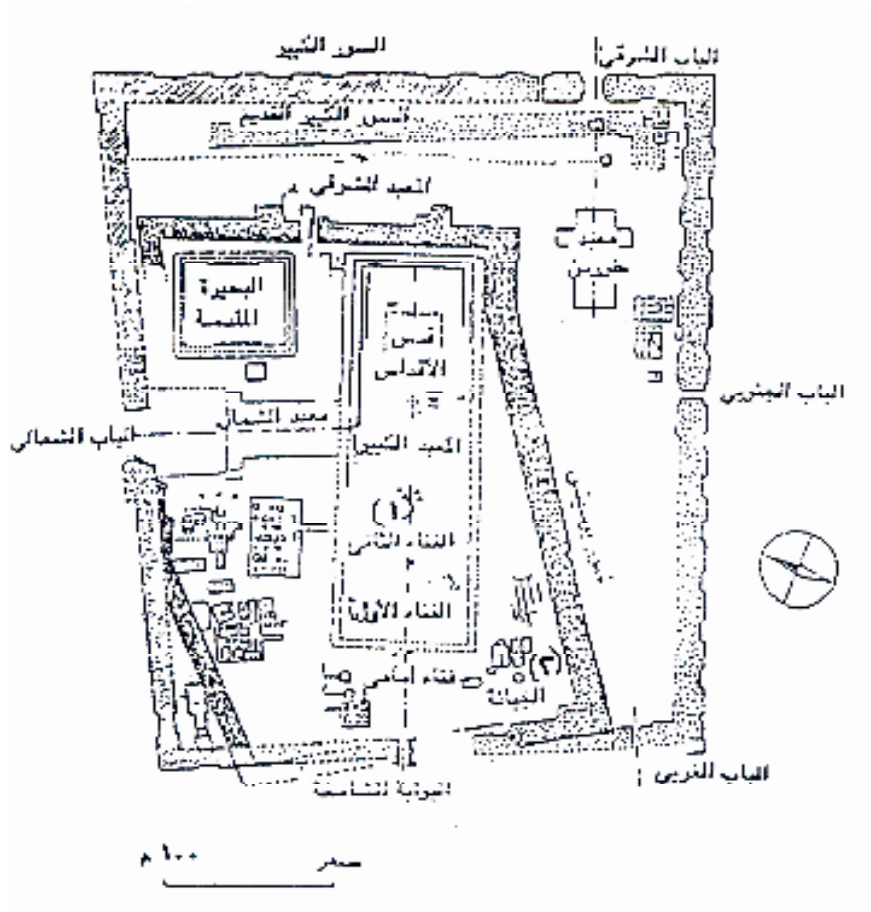 السور الكبير
الباب الشرقي
السور الكبير القديم
المعبد الشرقي
معبد
حورس
البحيرة
المقدسة
قدس
الأقداس
الباب الجنوبي
معبد الشمال
الباب الشمالي
المعبد الكبير
(١)
الفناء الثاني
الفناء الأول
(٢)
فناء أمامي
الجبانة
الباب الغربي
البوابة الشاسعة
صفر
١٠٠ م